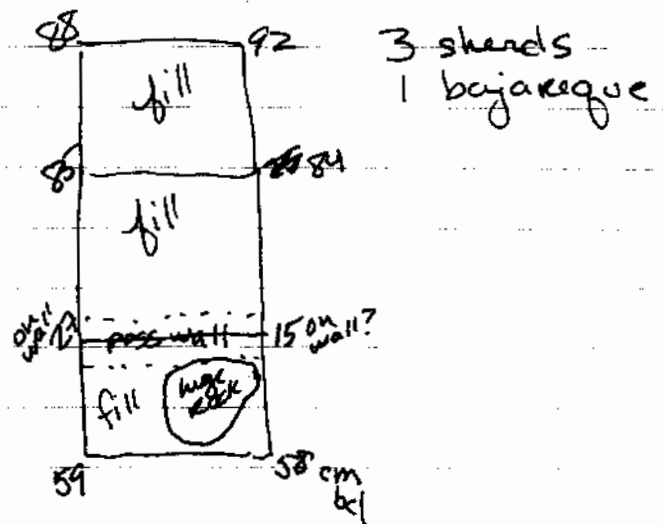 88 92 3 sherds
1 bajareque
fill
85 84
fill
on wall 27 poss wall 15 on wall?
fill huge rock
59 58 cm
bd